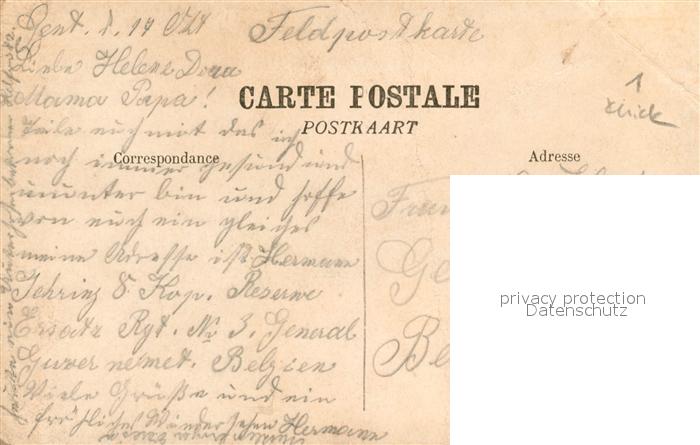 Gent. d. 14 Okt
Feldpostkarte
Liebe Helene Dora
Mama Papa!
CARTE POSTALE
POSTKAART
Teile euch mit das ich
Correspondance
Adresse
noch immer gesund und
munter bin und hoffe
von euch ein gleiches
meine Adresse ist Hermann
8 Kop. Reserve
Ersatz Rgt. No 3. General
Guvernemet. Belgien
Viele Grüße und ein
fröhliches Wiedersehen Hermann
Ge
Be
privacy protection
Datenschutz